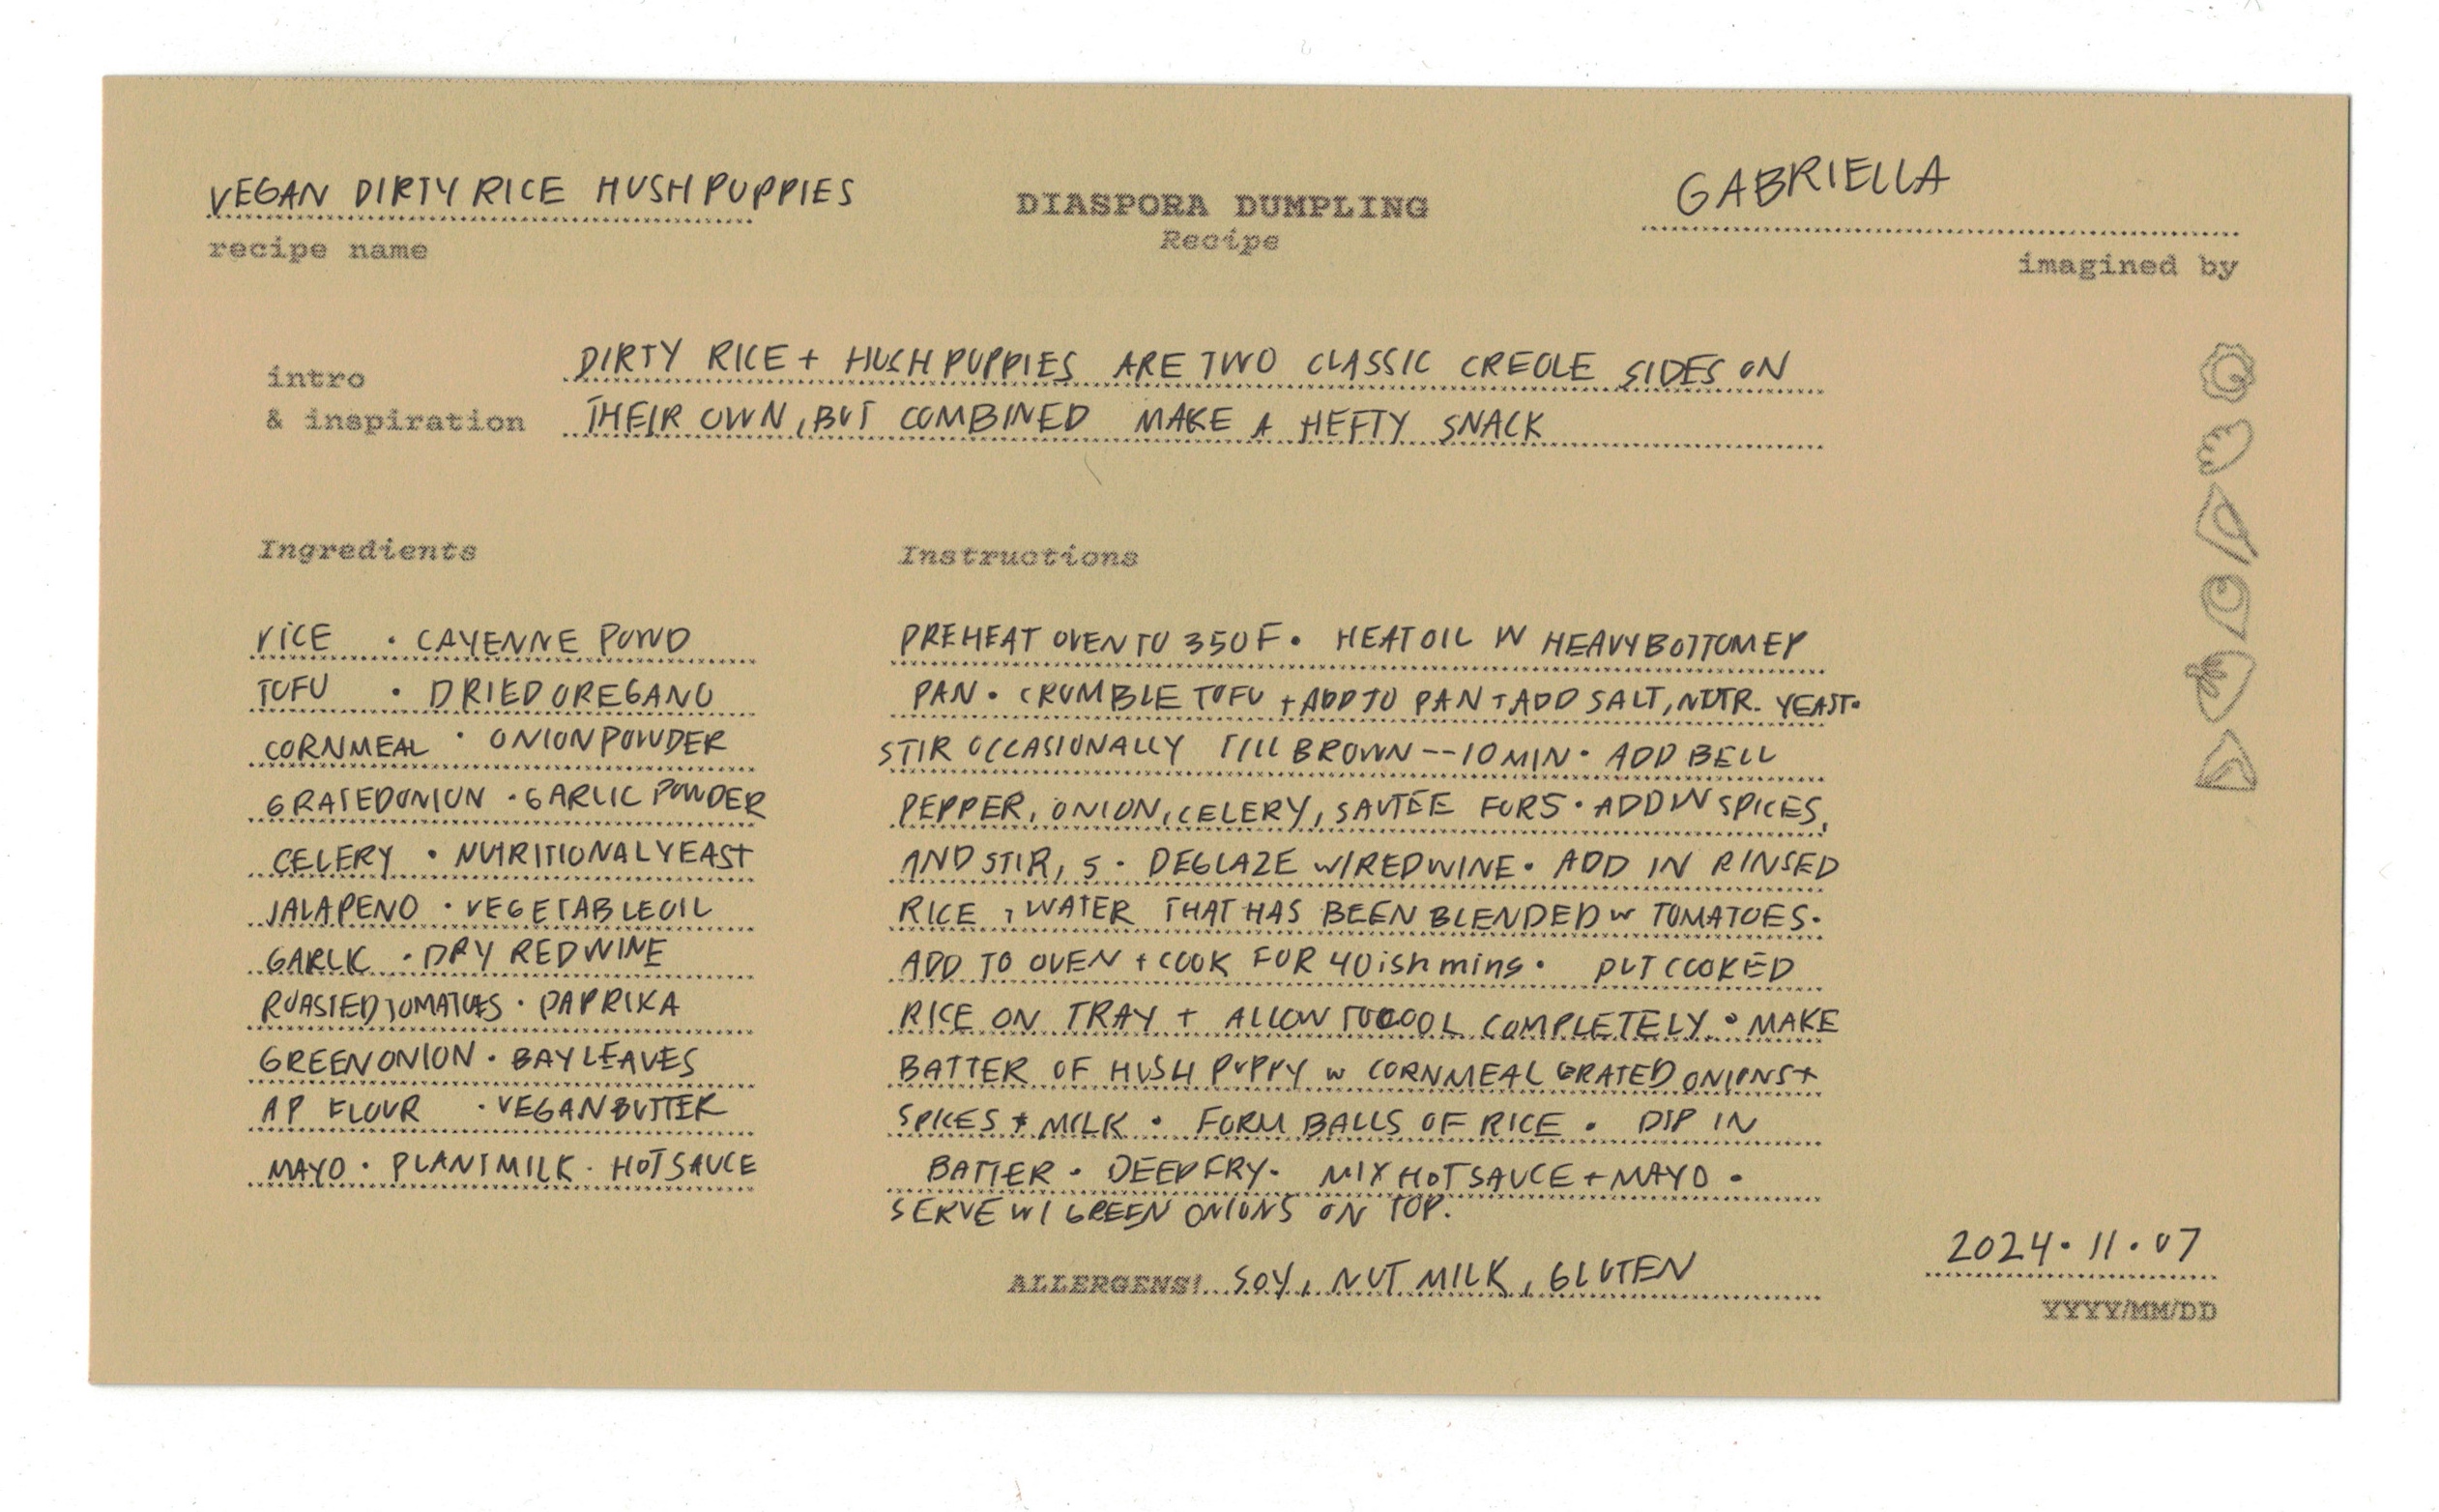 VEGAN DIRTY RICE HUSH PUPPIES
recipe name
DIASPORA DUMPLING
Recipe
GABRIELLA
imagined by
intro
& inspiration
DIRTY RICE + HUSH PUPPIES ARE TWO CLASSIC CREOLE SIDES ON
THEIR OWN, BUT COMBINED MAKE A HEFTY SNACK
Ingredients
RICE · CAYENNE POWD
TOFU · DRIED OREGANO
CORNMEAL · ONION POWDER
GRATED ONION · GARLIC POWDER
CELERY · NUTRITIONAL YEAST
JALAPENO · VEGETABLE OIL
GARLIC · DRY RED WINE
ROASTED TOMATOES · PAPRIKA
GREEN ONION · BAY LEAVES
AP FLOUR · VEGAN BUTTER
MAYO · PLANT MILK · HOT SAUCE
Instructions
PREHEAT OVEN TO 350F · HEAT OIL IN HEAVY BOTTOMED
PAN · CRUMBLE TOFU + ADD TO PAN + ADD SALT, NUTR. YEAST ·
STIR OCCASIONALLY TILL BROWN -- 10 MIN · ADD BELL
PEPPER, ONION, CELERY, SAUTEE FOR 5 · ADD IN SPICES,
AND STIR, 5 · DEGLAZE W/ RED WINE · ADD IN RINSED
RICE, WATER THAT HAS BEEN BLENDED W TOMATOES ·
ADD TO OVEN + COOK FOR 40ish mins · PUT COOKED
RICE ON TRAY + ALLOW TO COOL COMPLETELY · MAKE
BATTER OF HUSH PUPPY W CORNMEAL GRATED ONIONS +
SPICES + MILK · FORM BALLS OF RICE · DIP IN
BATTER · DEEP FRY · MIX HOT SAUCE + MAYO ·
SERVE W/ GREEN ONIONS ON TOP.
ALLERGENS! SOY, NUT MILK, GLUTEN
2024 · 11 · 07
YYYY/MM/DD